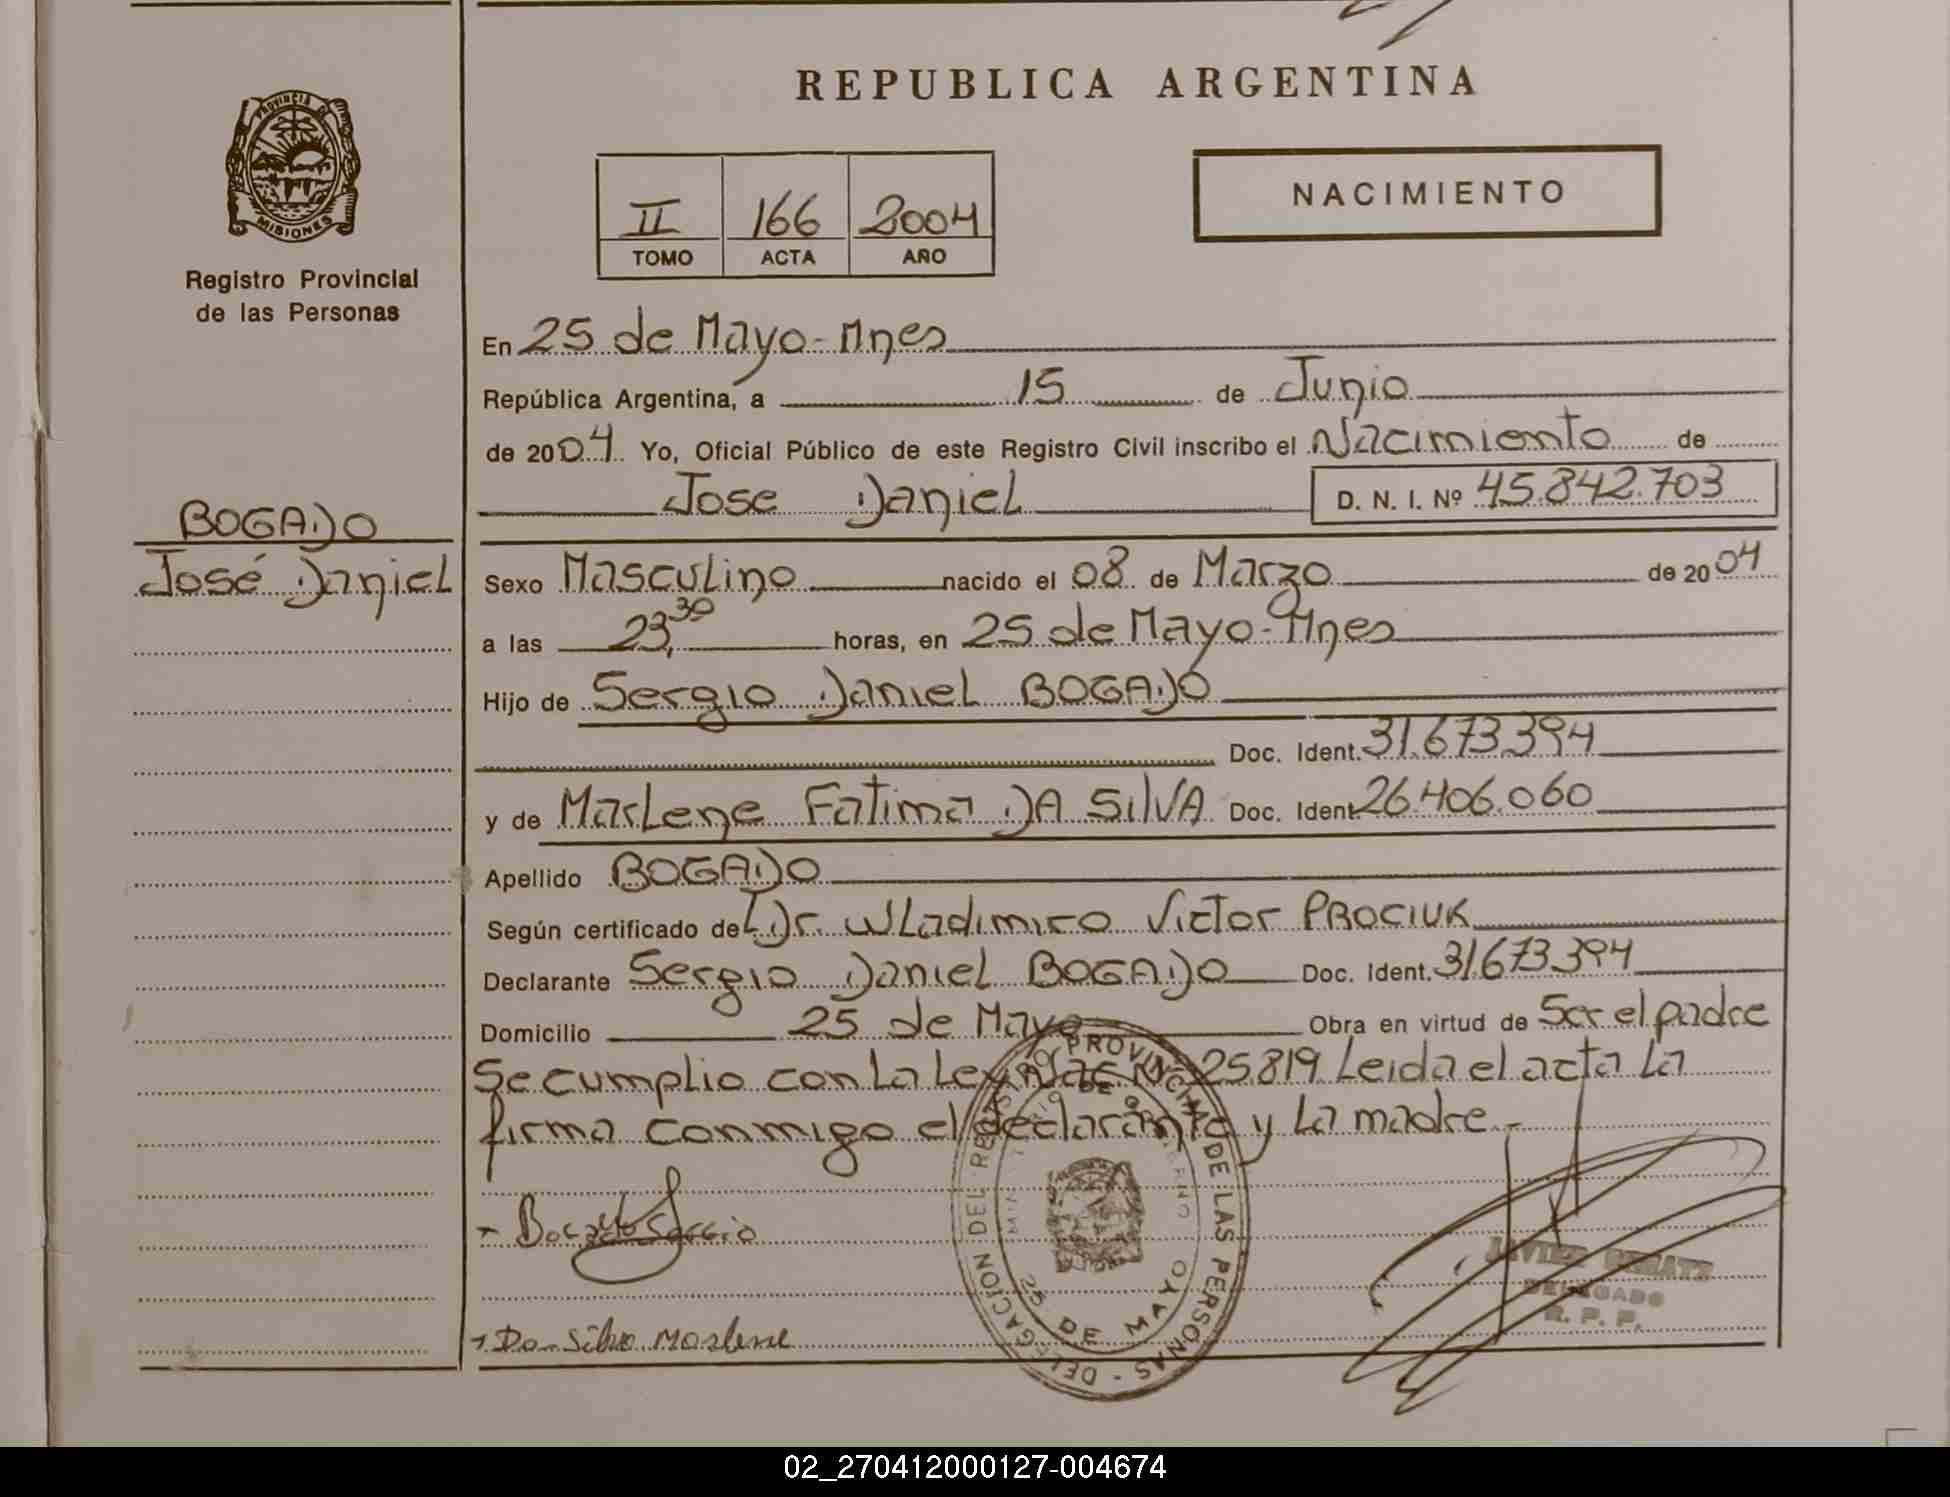 REPUBLICA ARGENTINA
PROVINCIA DE
MISIONES
Registro Provincial
de las Personas
II 166 2004
TOMO ACTA AÑO
NACIMIENTO
En 25 de Mayo - Mnes
República Argentina, a 15 de Junio
de 2004 Yo, Oficial Público de este Registro Civil inscribo el Nacimiento de
Jose Daniel D. N. I. Nº 45.842.703
BOGADO
José Daniel
Sexo Masculino nacido el 08 de Marzo de 2004
a las 23,30 horas, en 25 de Mayo - Mnes
Hijo de Sergio Daniel BOGADO
Doc. Ident. 31.673.394
y de Marlene Fatima DA SILVA Doc. Ident. 26.406.060
Apellido BOGADO
Según certificado de Dr. Wladimiro Victor PROCIUK
Declarante Sergio Daniel BOGADO Doc. Ident. 31.673.394
Domicilio 25 de Mayo Obra en virtud de Ser el padre
Se cumplio con la Ley Nac Nº 25819 Leida el acta La
firma conmigo el declarante y La madre.-
Bogado Sergio
Da Silva Marlene
DELEGACION DEL REGISTRO PROVINCIAL DE LAS PERSONAS -
MINISTERIO DE GOBIERNO
25 DE MAYO
JAVIER
DELEGADO
R. P. P.
02_270412000127-004674